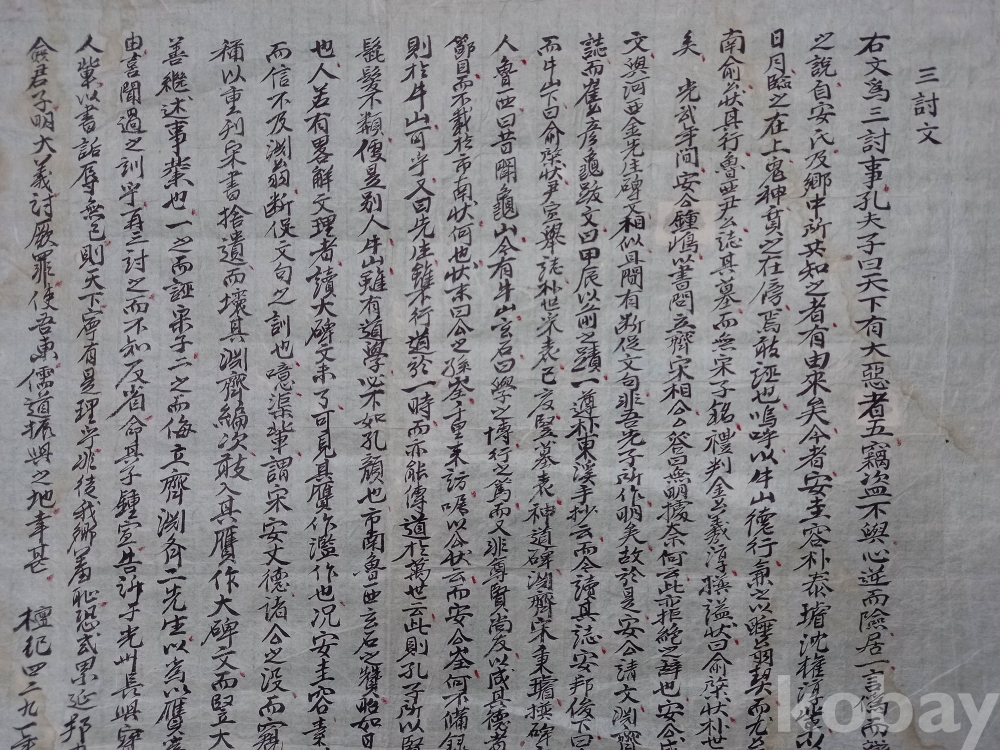 三討文
右文爲三討事孔夫子曰天下有大惡者五竊盜不與心逆而險居一言僞而
之說自安氏及鄕中所共知之者有由來矣今者安圭容朴泰 沈權清 以
日月臨之在上鬼神質之在傍焉敢誣也嗚呼以牛山德行兼之以 契而尤
南俞 狀其行魯西尹公誌其墓而無宋子 禮判金公義淳撰諡狀曰俞 狀朴世
矣 光武年間安公鍾 以書問立齊宋相公公答曰無明據奈何云此拒絕之辭也安公
文與河西金先生碑文相似且間有断 文句非吾先子所作明矣故於是安公請文淵齊
誌而崔彦 跋文曰甲辰以前之蹟一遵朴東溪手抄云而今讀其誌安邦俊下曰
而牛山下曰俞 狀尹宣擧誌朴世采表已 竪墓表神道碑淵齊宋秉璿撰碑
人魯西曰昔聞龜山今有牛山玄石曰學之博行之篤而又非尊賢尚友以成其德者
鄒目而不載於市南狀何也狀末曰公之孫 千里來訪 以公狀云而安公 何不備錄
則於牛山可乎又曰先生雖不行道於一時而亦能傳道於萬世云此則孔子所以
髭髮不類便是別人牛山雖有道學必不如孔顏也市南魯西玄石之贊昭如日
也人若有略解文理者讀大碑文未了可見其贋作濫作也况安圭容
而信不及淵翁断 文句之訓也噫渠輩謂宋安丈德諸公之沒而
稱以重刊宋書捨遺而壞其淵齊編次敢入其贋作大碑文而竪大
善繼述事業也一之而誣宋子二之而侮立齊淵齊二先生以爲以贋
由喜聞過之訓乎再三討之而不知反省命其子鍾宣告訴于光州長與
人輩以書詬辱無已則天下寧有是理乎非徒我鄕羞恥恐或累延邦
僉君子明大義討厥罪使吾東儒道振興之地幸甚 檀紀四二九一年
kobay